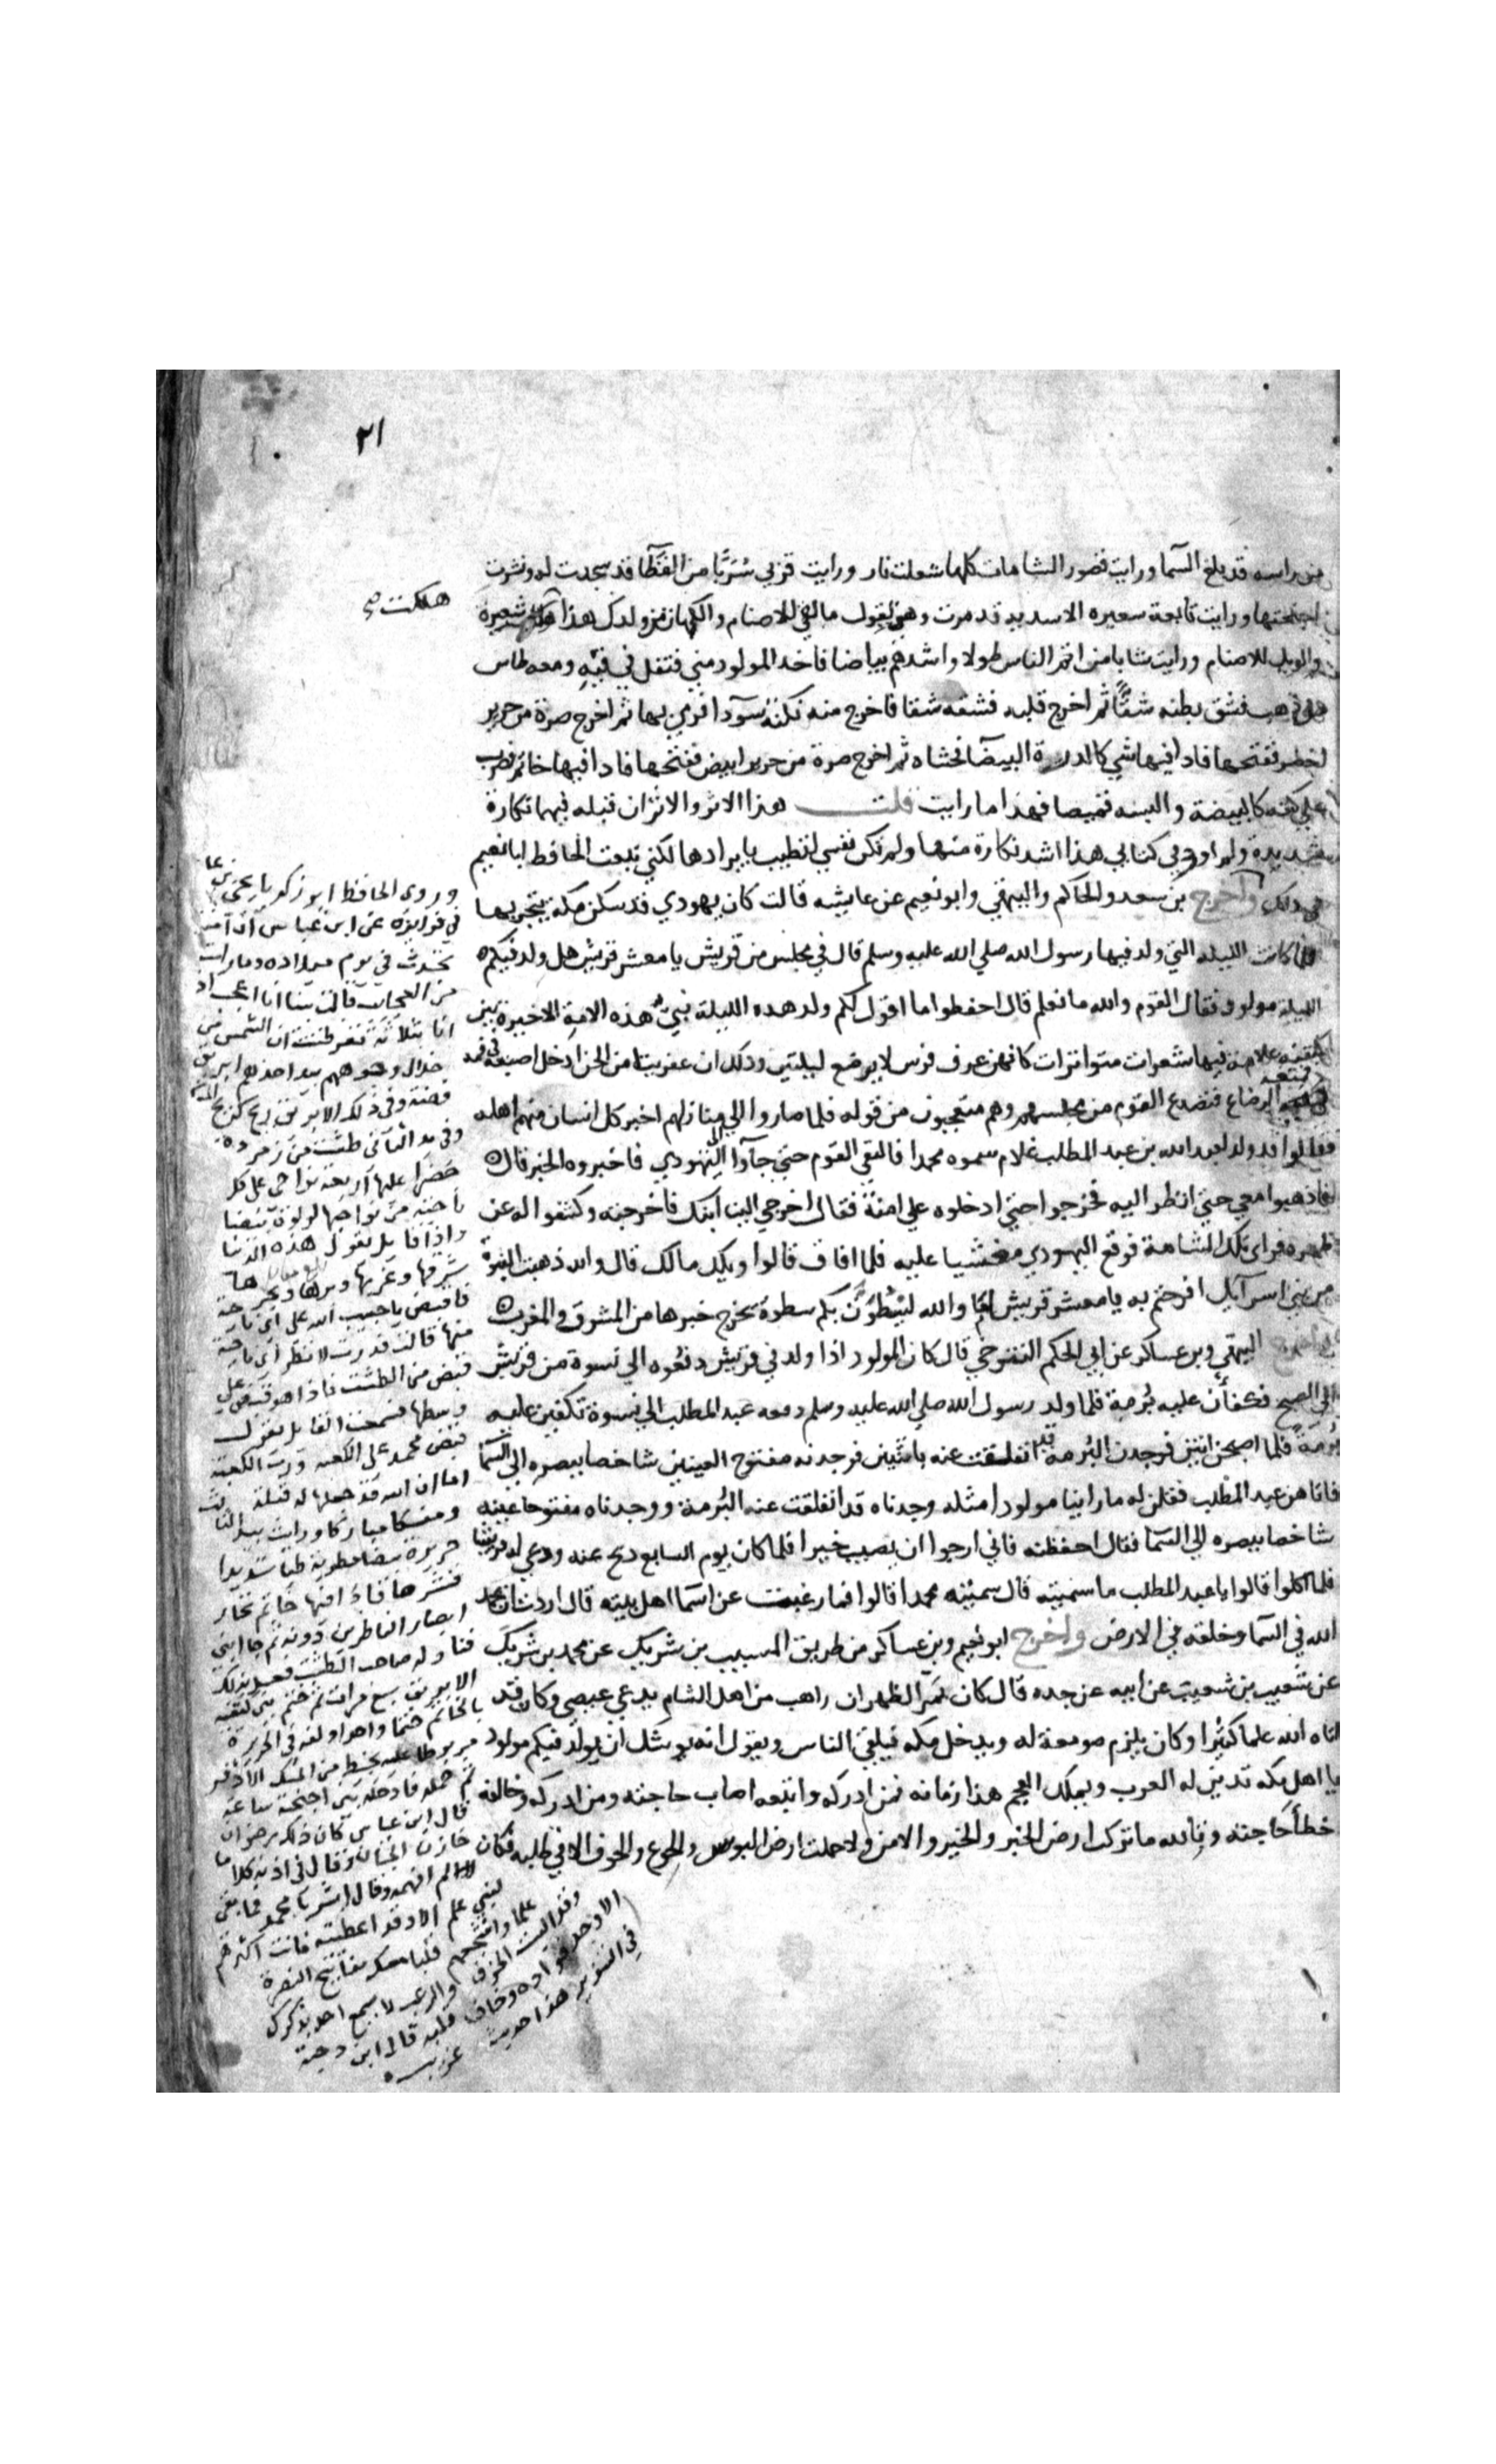 ٢١
من راسه قد بلغ السما ورايت قصور الشامات كلها شعلت نار ورايت قربي سربا من القطا قد سجدت له ونشرت
اجنحتها ورايت تابعة سعيره الاسديه قد مرت وهي تقول ما لقي الاصنام والكهان من ولدك هذا هلكت سعيرة
والويل للاصنام ورايت شابا من اتم الناس طولا واشدهم بياضا فاخد المولود مني فتفل في فيه ومعه طاس
من ذهب فشق بطنه شقا ثم اخرج قلبه فشقه شقا فاخرج منه نكتة سودا فرمي بها ثم اخرج صرة من حرير
اخضر ففتحها فادا فيها شي كالدرة البيضا فحشاه ثم اخرج صرة من حرير ابيض ففتحها فادا فيها خاتم فضرب
علي كتفه كالبيضة والبسه قميصا فهذا ما رايت قلت هذا الاثر والاثران قبله فيهما نكارة
شديدة ولم اورد في كتابي هذا اشد نكارة منها ولم تكن نفسي لتطيب بايرادها لكني تبعت الحافظ ابا نعيم
في دلك واخرج بن سعد والحاكم والبيهقي وابو نعيم عن عايشه قالت كان يهودي قد سكن مكة يتجر بها
فلما كانت الليله التي ولد فيها رسول الله صلي الله عليه وسلم قال في مجلس من قريش يا معشر قريش هل ولد فيكم
الليلة مولود فقال القوم والله ما نعلم قال احفظوا ما اقول لكم ولد هده الليلة نبي هذه الامة الاخيرة بين
كتفيه علامة فيها شعرات متواترات كانهن عرف فرس لا يرضع ليلتين ودلك ان عفريتا من الجن ادخل اصبعه في فمه
فمنعه الرضاع فتصدع القوم من مجلسهم وهم متعجبون من قوله فلما صاروا الي منازلهم اخبر كل انسان منهم اهله
فقالوا قد ولد لعبد الله بن عبد المطلب غلام سموه محمدا فالتقي القوم حتي جاوا الي اليهودي فاخبروه الخبر قال
فاذهبوا معي حتي انظر اليه فخرجوا حتي ادخلوه علي امنة فقال اخرجي الينا ابنك فاخرجته وكشفوا له عن
ظهره فراي تلك الشامة فوقع اليهودي مغشيا عليه فلما افاق قالوا ويلك مالك قال والله ذهبت النبوة
من بني اسرآيل افرحتم به يا معشر قريش اما والله ليسطون بكم سطوة يخرج خبرها من المشرق والمغرب
واخرج البيهقي وبن عساكر عن ابي الحكم التنوخي قال كان المولود اذا ولد في قريش دفعوه الي نسوة من قريش
الي الصبح فكفأن عليه برمة فلما ولد رسول الله صلي الله عليه وسلم دفعه عبد المطلب الي نسوة تكفين عليه
برمة فلما اصبحن اتين فوجدن البرمة قد انفلقت عنه باثنين فوجدنه مفتوح العينين شاخصا ببصره الي السما
فاتاهن عبد المطلب فقلن له ما راينا مولودا مثله وجدناه قد انفلقت عنه البرمة ووجدناه مفتوحا عينه
شاخصا ببصره الي السما فقال احفظنه فاني ارجوا ان يصيب خيرا فلما كان يوم السابع دبح عنه ودعي له قريشا
فلما اكلوا قالوا يا عبد المطلب ما سميته قال سميته محمدا قالوا فما رغبت عن اسما اهل بيته قال اردت ان يحمد
الله في السما وخلقه في الارض واخرج ابو نعيم وبن عساكر من طريق المسيب بن شريك عن محمد بن شريك
عن شعيب بن شعيب عن ابيه عن جده قال كان بمر الظهران راهب من اهل الشام يدعي عيصي وكان قد
اتاه الله علما كثيرا وكان يلزم صومعة له ويدخل مكه فيلقي الناس ويقول انه يوشك ان يولد فيكم مولود
يا اهل مكه تدين له العرب ويملك العجم هذا زمانه فمن ادركه واتبعه اصاب حاجته ومن ادركه وخالفه
خطأ حاجته وتالله ما تركت ارض الخبز والخمير والامن ولا حللت ارض البوس والجوع والخوف الا في طلبه فكان
هلكت صح
وروي الحافظ ابو زكريا يحيي بن عا
في فوايده عن ابن عباس ان آمنة
تحدث في يوم ميلاده وما رات
من العجايب قالت بينا انا اعجب اد
انا بثلاثة نفر ظننت ان الشمس من
خلال وجوههم بيد احدهم ابريق
فضة وفي ذلك الابريق ريح كريح المسك
وفي يد الثاني طشت من زمردة
خضرا عليها اربعة نواحي علي كل
ناحية من نواحيها لولوة بيضا
واذا قايل يقول هذه الدنيا
شرقها وغربها وبرها وبحرها
فاقبض يا حبيب الله علي اي ناحية
منها قالت فدرت لانظر اي ناحية
قبض من الطشت فاذا هو قبض علي
وسطها فسمعت القايل يقول
قبض محمد علي الكعبة ورب الكعبة
اما ان الله قد جعلها له قبلة
ومسكنا مباركا ورايت بيد الثالث
حريرة بيضا مطوية طيا شديدا
فنشرها فاذا فيها خاتم تحار
ابصار الناظرين دونه ثم جا الي
فناوله صاحب الطشت فغسل بذلك
الابريق سبع مرات ثم ختم بين كتفيه
بالخاتم ختما واحدا ولفه في الحريرة
مربوطا عليه بخيط من المسك الاذفر
ثم حمله فادخله بين اجنحته ساعة
قال ابن عباس كان ذلك رضوان
خازن الجنان وقال في اذنه كلاما
لم افهمه وقال ابشر يا محمد فما بقي
لنبي علم الا وقد اعطيته فانت اكثرهم
علما واشجعهم قلبا معك مفاتيح النصرة
وقد البست الخوف والرعب لا يسمع احد بذكرك
الا وجل فؤاده وخاف قلبه قال ابن دحية
في التنوير هذا حديث غريب